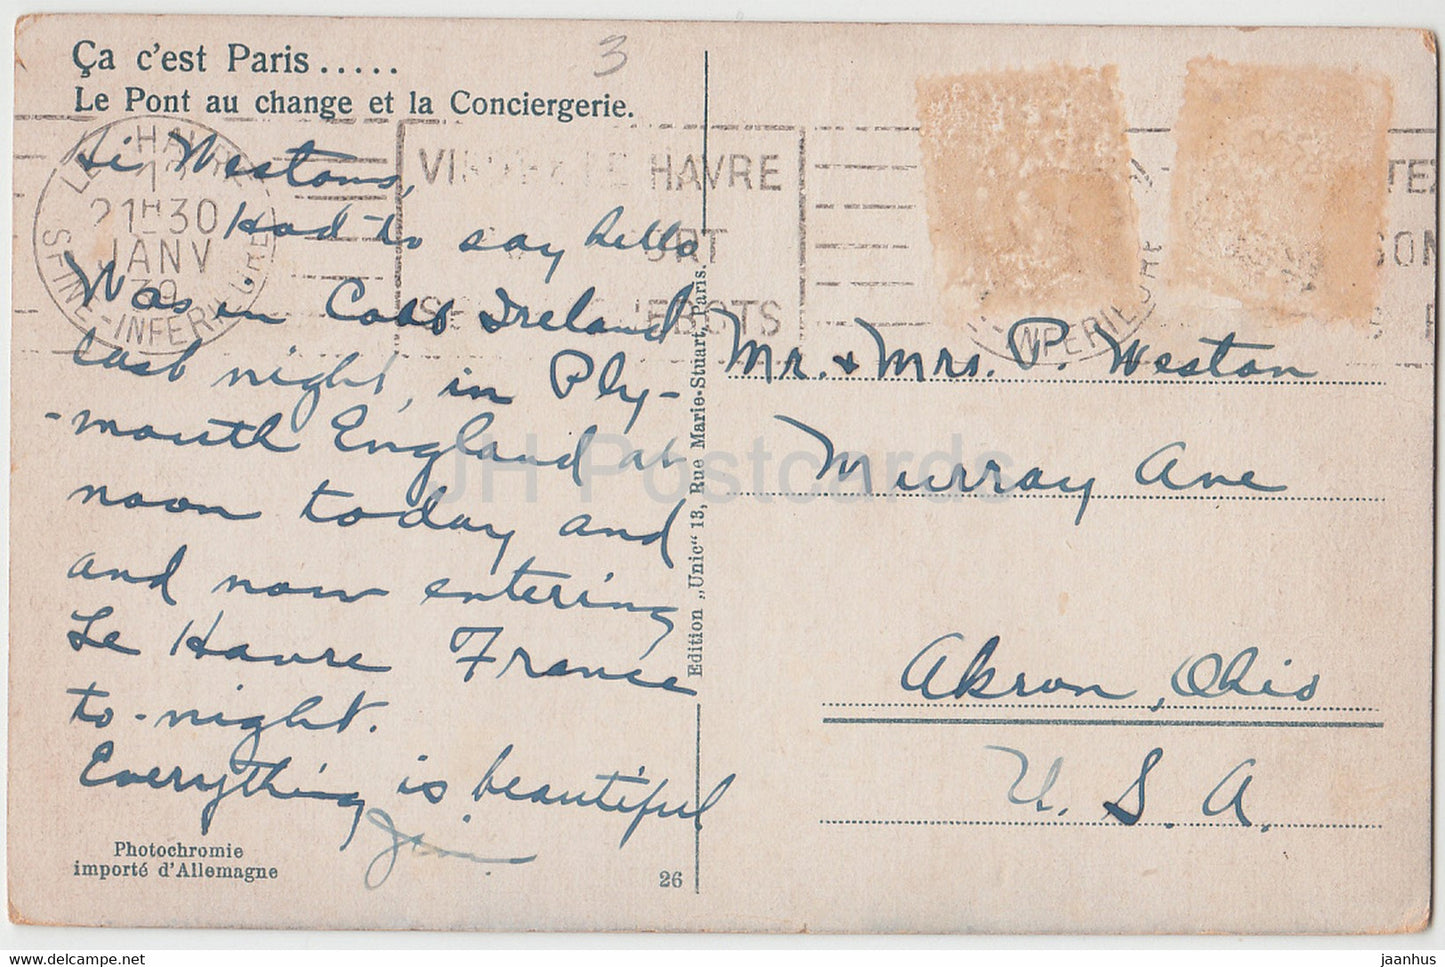 Ça c'est Paris.....
3
Le Pont au change et la Conciergerie.
LE HAVRE
21H30
JANV
SEINE-INFERIEURE
HAVRE
Hi Westons,
Had to say hello
Was in Cobb Ireland
last night, in Ply-
-mouth England at
noon today and
and now entering
Le Havre France
to-night.
Everything is beautiful
Jim
Photochromie
importé d'Allemagne
26
Edition „Unic“ 13, Rue Marie-Stuart, Paris.
Mr. & Mrs. P. Weston
Murray Ave
Akron, Ohio
U. S. A.
JH Postcards
jaanhus